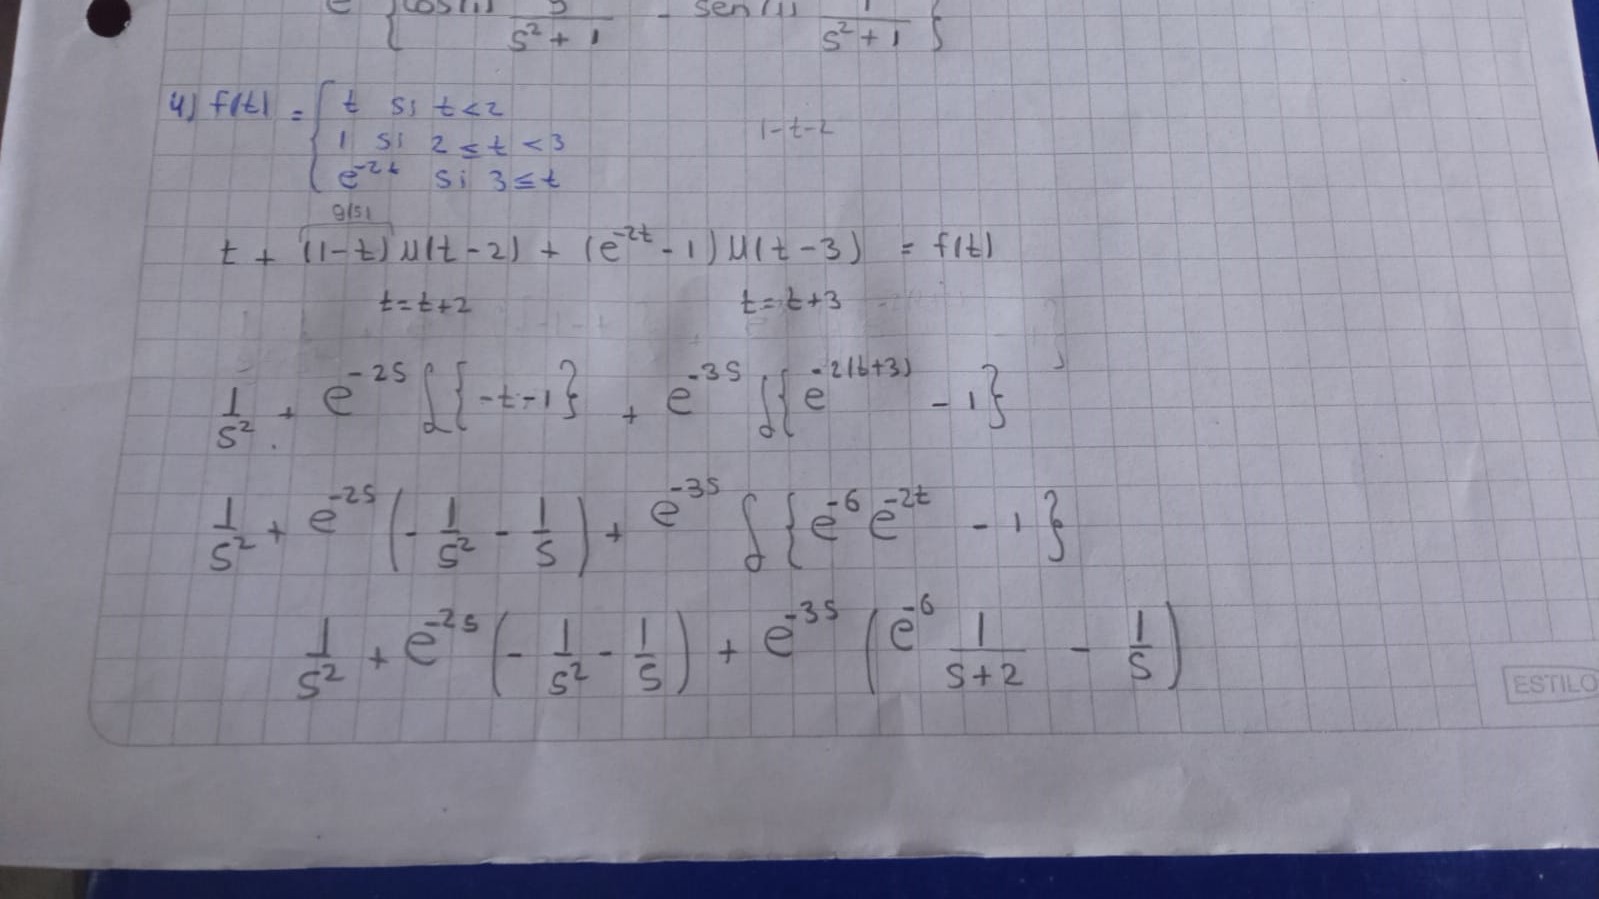 e { cos(1) s/(s²+1) - sen(1) 1/(s²+1) }
4) f(t) = { t si t<2
1 si 2 ≤ t < 3
1-t-2
e^{-2t} si 3 ≤ t
g(s)
t + (1-t) U(t-2) + (e^{-2t} - 1) U(t-3) = f(t)
t=t+2 t=t+3
1/s² + e^{-2s} ℒ{-t-1} + e^{-3s} ℒ{e^{-2(t+3)} - 1}
1/s² + e^{-2s} (-1/s² - 1/s) + e^{-3s} ℒ{e^{-6} e^{-2t} - 1}
1/s² + e^{-2s} (-1/s² - 1/s) + e^{-3s} (e^{-6} 1/(s+2) - 1/s)
ESTILO